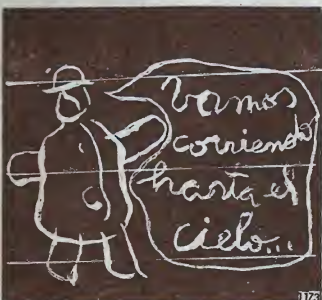 vamos
corriendo
hasta el
cielo...
1173